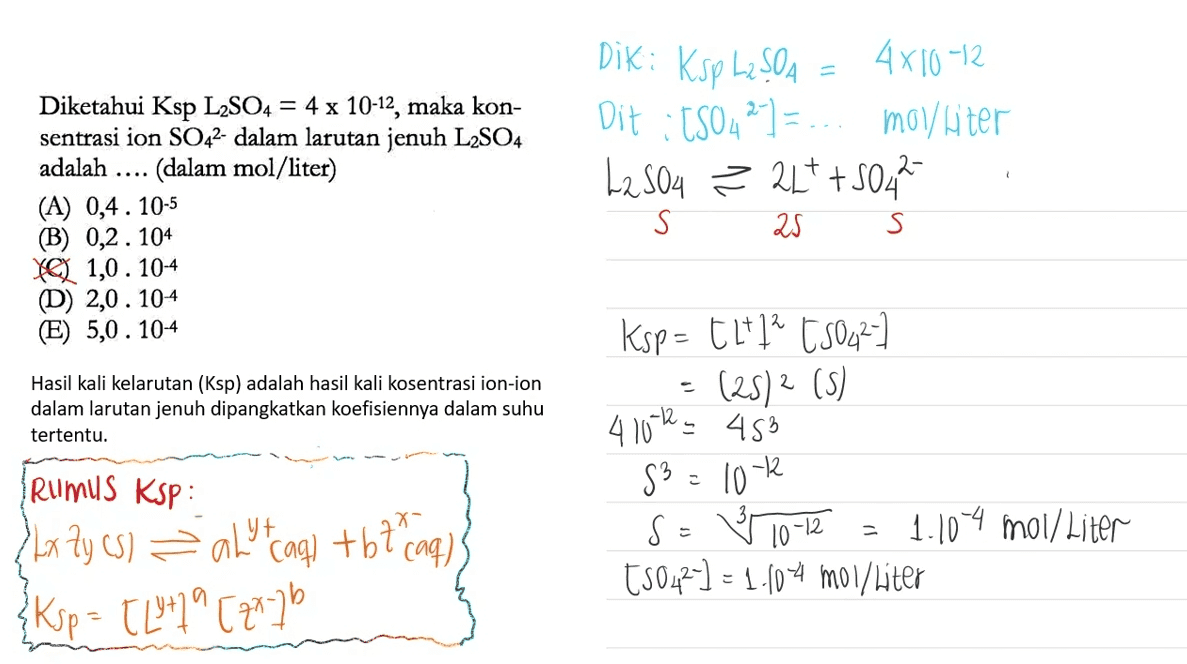 Diketahui Ksp L₂SO₄ = 4 x 10⁻¹², maka kon-
sentrasi ion SO₄²⁻ dalam larutan jenuh L₂SO₄
adalah .... (dalam mol/liter)
(A) 0,4 . 10⁻⁵
(B) 0,2 . 10⁴
(C) 1,0 . 10⁻⁴
(D) 2,0 . 10⁻⁴
(E) 5,0 . 10⁻⁴
Hasil kali kelarutan (Ksp) adalah hasil kali kosentrasi ion-ion
dalam larutan jenuh dipangkatkan koefisiennya dalam suhu
tertentu.
RUMUS KSP:
Lx Zy (s) ⇌ aL^y+ (aq) + bZ^x- (aq)
Ksp = [L^y+]^a [Z^x-]^b
Dik : Ksp L₂SO₄ = 4×10⁻¹²
Dit : [SO₄²⁻] = ... mol/Liter
L₂SO₄ ⇌ 2L⁺ + SO₄²⁻
S 2S S
Ksp = [L⁺]² [SO₄²⁻]
= (2S)² (S)
4 10⁻¹² = 4S³
S³ = 10⁻¹²
S = ³√10⁻¹² = 1.10⁻⁴ mol/Liter
[SO₄²⁻] = 1.10⁻⁴ mol/Liter